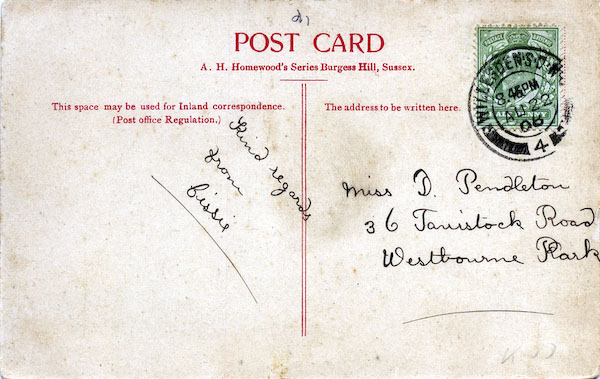 POST CARD
A. H. Homewood's Series Burgess Hill, Sussex.
This space may be used for Inland correspondence.
(Post office Regulation.)
The address to be written here.
Kind regards
from
Cissie
Miss D. Pendleton
36 Tavistock Road
Westbourne Park
8.45PM
AU 23
06
4